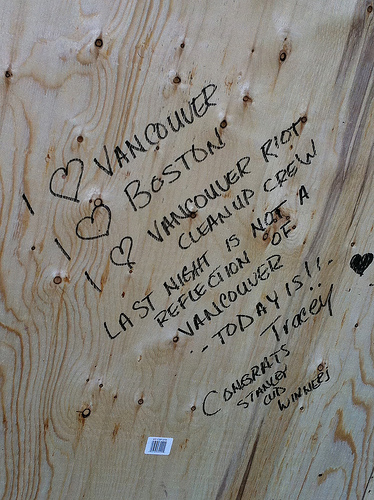 I ♡ VANCOUVER
I ♡ BOSTON
I ♡ VANCOUVER RIOT
CLEANUP CREW
LAST NIGHT IS NOT A
REFLECTION OF
VANCOUVER
...TODAY IS!!.
Tracey
CONGRATS
STANLEY
CUP
WINNERS